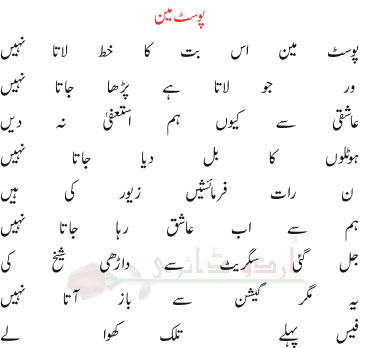 پوسٹ مین
پوسٹ مین اس بت کا خط لاتا نہیں
ور جو لاتا ہے پڑھا جاتا نہیں
عاشقی سے کیوں ہم استعفیٰ نہ دیں
ہوٹلوں کا بل دیا جاتا نہیں
ن رات فرمائشیں زیور کی ہیں
ہم سے اب عاشق رہا جاتا نہیں
جل گئی سگریٹ سے داڑھی شیخ کی
یہ مگر گیشن سے باز آتا نہیں
فیس پہلے تلک کھوا لے
اُردو ڈائری